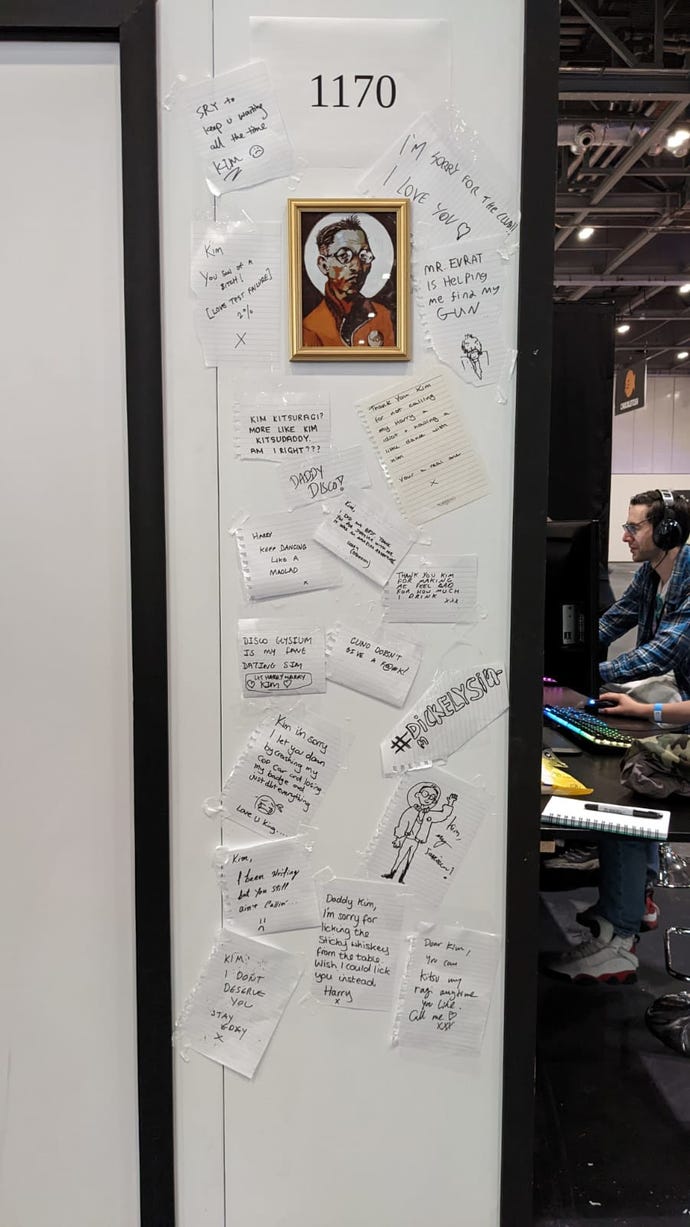 1170
SRY to
keep u waiting
all the time
KIM
I'M SORRY FOR THE CLUB!!
I LOVE YOU ♡
Kim
YOU SON OF A
BITCH!
[LOVE TEST FAILURE]
2%
X
MR. EVRAT
IS HELPING
me find my
GUN
KIM KITSURAGI?
MORE LIKE KIM
KITSUDADDY.
AM I RIGHT???
Thank You Kim
for not calling
my Harry a
idiot + having a
little dance with
him
Your a real one
x
DADDY
DISCO!
Kim,
HARRY
KEEP DANCING
LIKE A
MADLAD
x
THANK YOU KIM
FOR MAKING
ME FEEL BAD
FOR HOW MUCH
I DRINK xxx
DISCO ELYSIUM
IS MY FAVE
DATING SIM
LUV HARRY HARRY
♡ KIM ♡
CUNO DOESN'T
GIVE A F@#K!
#DICKELYSIUM
Kim im sorry
I let you down
by crashing my
Cop Car and losing
my badge and
Just dbt everything
Love u King...
Kim,
my
Kim,
I been writing
but you still
ain't callin...
Daddy Kim,
I'm sorry for
licking the
Sticky whiskey
from the table.
Wish I could lick
you instead
Harry
x
Dear Kim,
You can
Kitsu my
ragi anytime
you like.
Call me ♡
xxx
KIM!
I DON'T
DESERVE
YOU
STAY
x